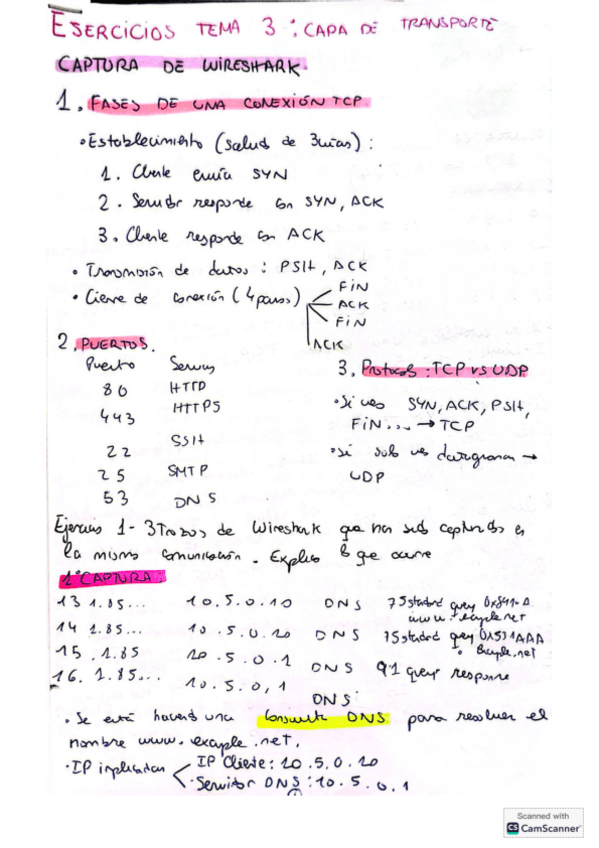 EJERCICIOS TEMA 3: CAPA DE TRANSPORTE
CAPTURA DE WIRESHARK.
1. FASES DE UNA CONEXIÓN TCP.
• Establecimiento (salud de 3 vías):
1. Cliente envía SYN
2. Servidor responde con SYN, ACK
3. Cliente responde con ACK
• Transmisión de datos: PSH, ACK
• Cierre de conexión (4 pasos)
FIN
ACK
FIN
ACK
2. PUERTOS.
Puerto Servicio
80 HTTP
443 HTTPS
22 SSH
25 SMTP
53 DNS
3. Protocolos: TCP vs UDP
• Si ves SYN, ACK, PSH,
FIN... → TCP
• si solo ves datagramas →
UDP
Ejercicio 1 - 3 trozos de Wireshark que han sido capturados en
la misma comunicación. Explica lo que ocurre
1ª CAPTURA:
13 1.85... 10.5.0.10 DNS 75 standard query
www.example.net
14 1.85... 10.5.0.20 DNS 75 standard query
example.net
15. 1.85 20.5.0.1 DNS 91 query response
16. 1.85... 10.5.0,1
DNS
• Se está haciendo una consulta DNS para resolver el
nombre www.example.net.
• IP implicadas
IP Cliente: 10.5.0.20
• Servidor DNS: 10.5.0.1
Scanned with
CS CamScanner